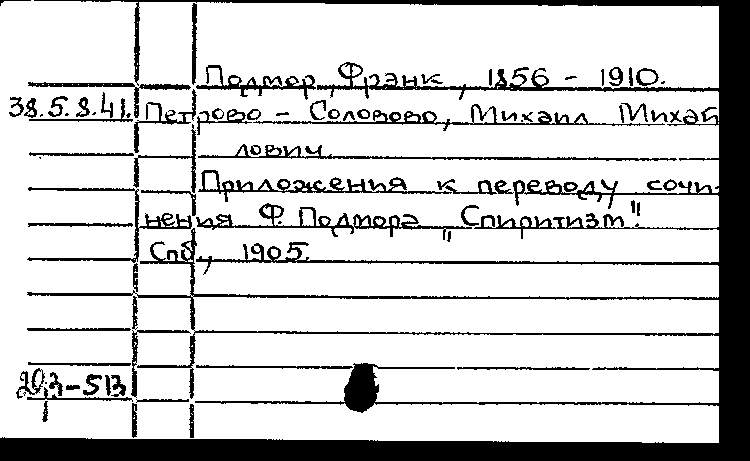 Подмор, Фрэнк, 1856 - 1910.
38.5.8.41. Петрово - Соловово, Михаил Михай
лович
Приложения к переводу сочи-
нения Ф. Подмора „Спиритизм".
Спб., 1905.
203-513
1